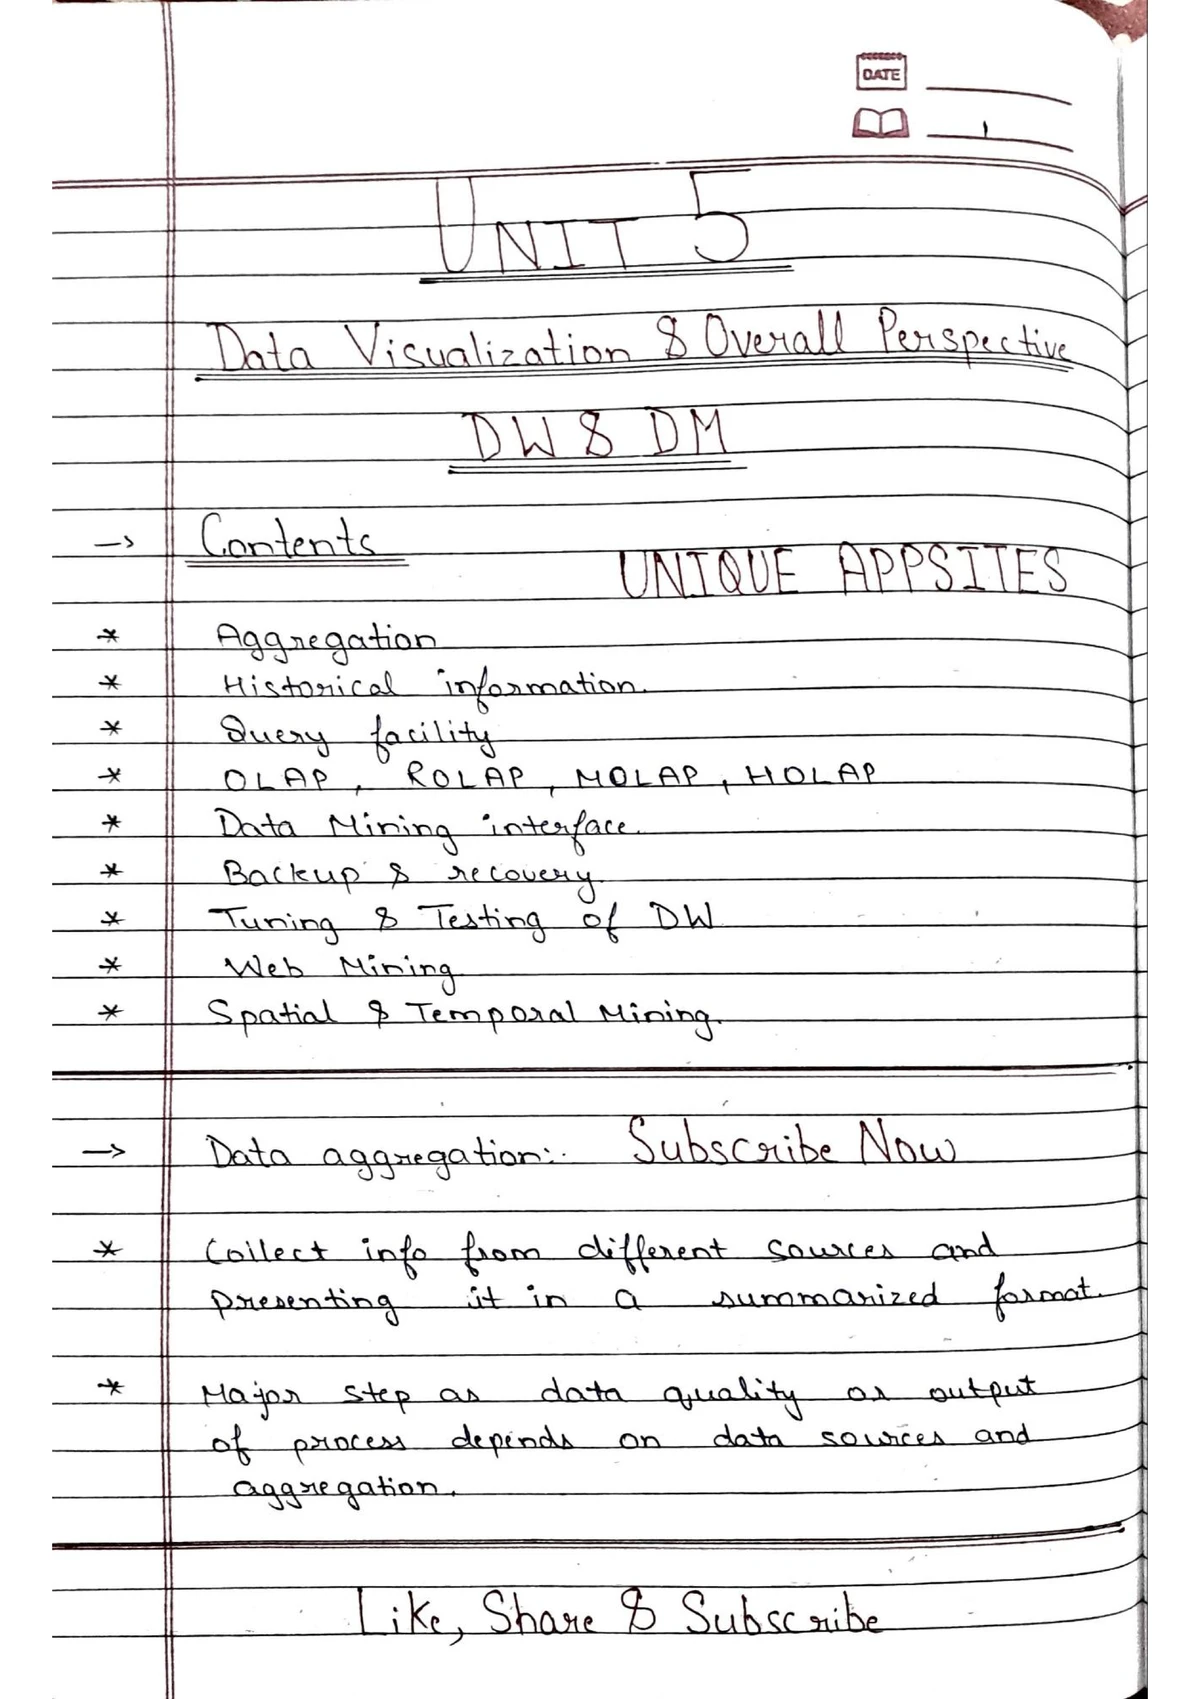 DATE
1
UNIT 5
Data Visualization & Overall Perspective
DW & DM
→ Contents
UNIQUE APPSITES
* Aggregation
* Historical information.
* Query facility
* OLAP, ROLAP, MOLAP, HOLAP
* Data Mining interface.
* Backup & recovery.
* Tuning & Testing of DW
* Web Mining
* Spatial & Temporal Mining.
→ Data aggregation:- Subscribe Now
* Collect info from different sources and
presenting it in a summarized format.
* Major step as data quality or output
of process depends on data sources and
aggregation.
Like, Share & Subscribe